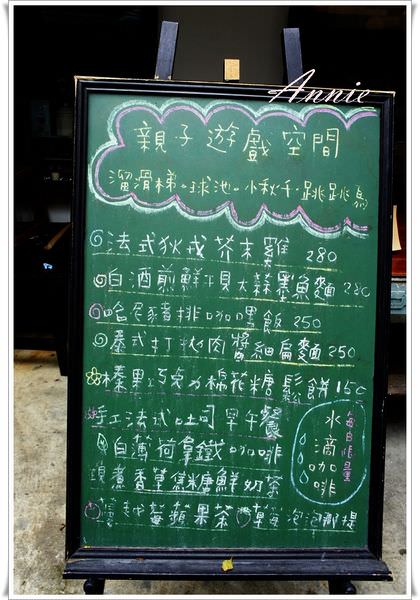 Annie
親子遊戲空間
溜滑梯。球池。小秋千。跳跳馬
法式狄戎芥末雞 280
白酒煎鮮干貝大蒜墨魚麵 280
哈尼豬排咖哩飯 250
泰式打拋肉醬細扁麵 250
榛果巧克力棉花糖鬆餅 150
手工法式吐司早午餐
白薄荷拿鐵咖啡
現煮香草焦糖鮮奶茶
蔓越莓蘋果茶 草莓泡泡那提
每日限量
水滴咖啡